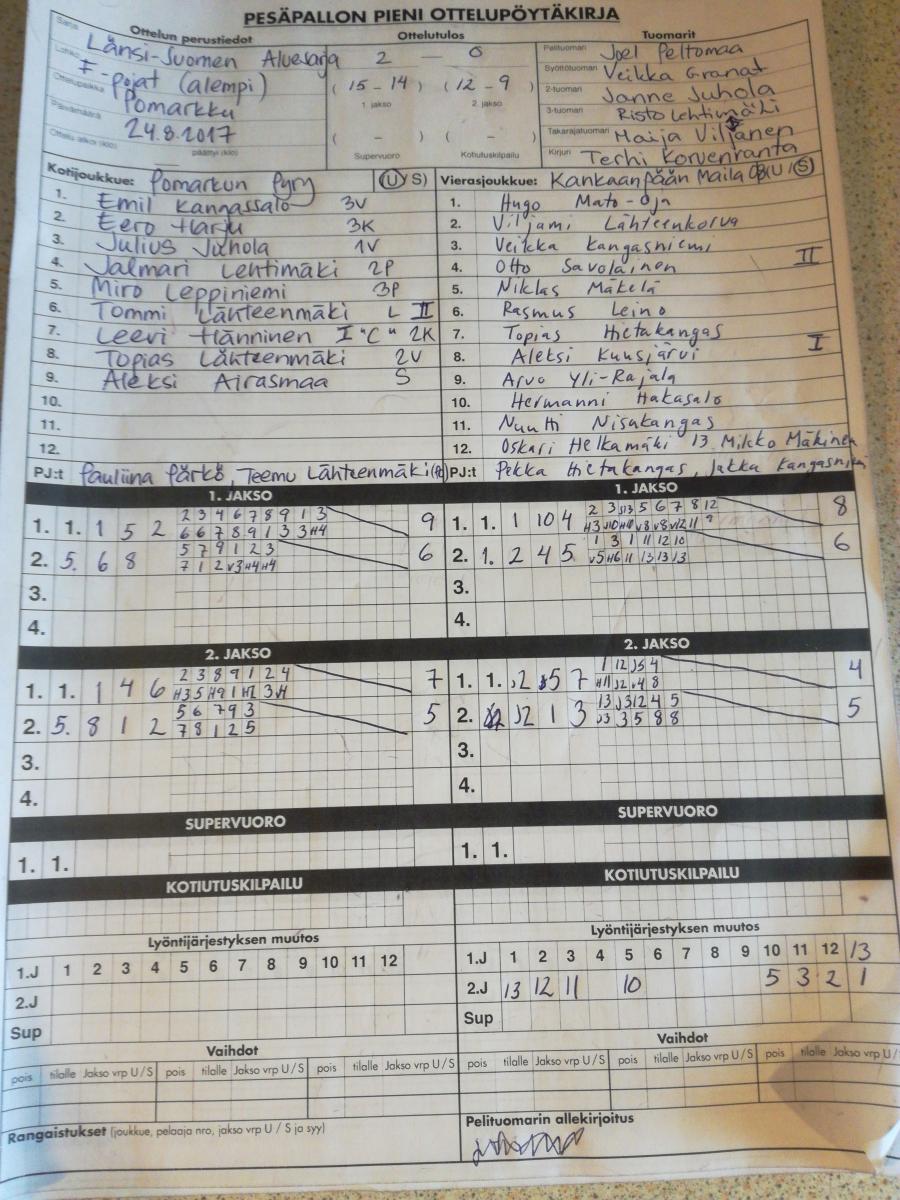 PESÄPALLON PIENI OTTELUPÖYTÄKIRJA
Ottelun perustiedot Ottelutulos Tuomarit
Sarja Länsi-Suomen Aluesarja 2 — 0 Pelituomari Joel Peltomaa
Lohko F-pojat (alempi) (15 - 14) (12 - 9) Syöttötuomari Veikka Granat
Ottelupaikka Pomarkku 1. jakso 2. jakso 2-tuomari Janne Juhola
Päivämäärä 24.8.2017 3-tuomari Risto Lehtimäki
Ottelu alkoi (klo) päättyi (klo) ( - ) ( - ) Takarajatuomari Maija Viljanen
Supervuoro Kotiutuskilpailu Kirjuri Terhi Korvenranta
Kotijoukkue: Pomarkun Pyry (U/S) Vierasjoukkue: Kankaanpään Maila (U/S)
1. Emil Kangassalo 3V 1. Hugo Mato-Oja
2. Eero Harju 3K 2. Viljami Lähteenkorva
3. Julius Juhola 1V 3. Veikka Kangasniemi
4. Jalmari Lehtimäki 2P 4. Otto Savolainen II
5. Miro Leppiniemi 3P 5. Niklas Mäkelä
6. Tommi Lähteenmäki L II 6. Rasmus Leino
7. Leevi Hänninen I "C" 2K 7. Topias Hietakangas
8. Topias Lähteenmäki 2V 8. Aleksi Kuusjärvi I
9. Aleksi Airasmaa S 9. Arvo Yli-Rajala
10. 10. Hermanni Hakasalo
11. 11. Nuutti Nisukangas
12. 12. Oskari Helkamäki 13. Mikko Mäkinen
PJ:t Pauliina Pärkö, Teemu Lähteenmäki PJ:t Pekka Hietakangas, Jukka
1. JAKSO 1. JAKSO
2 3 4 6 7 8 9 1 3 2 3 J13 5 6 7 8 12
1. 1. 1 5 2 9 1. 1. 1 10 4 8
6 6 7 8 9 1 3 3 H4
5 7 9 1 2 3 1 3 1 11 12 10
2. 5. 6 8 6 2. 1. 2 4 5 6
7 1 2 V3 H4 H4 V5 H6 11 13 13 13
3. 3.
4. 4.
2. JAKSO 2. JAKSO
2 3 8 9 1 2 4 1 12 J5 4
1. 1. 1 4 6 7 1. 1. J2 5 7 4
H11 J2 V4 8
5 6 7 9 3 13 J3 12 4 5
2. 5. 8 1 2 5 2. J2 1 3 5
7 8 1 2 5 J3 3 5 8 8
3. 3.
4. 4.
SUPERVUORO SUPERVUORO
1. 1. 1. 1.
KOTIUTUSKILPAILU KOTIUTUSKILPAILU
Lyöntijärjestyksen muutos Lyöntijärjestyksen muutos
1.J 1 2 3 4 5 6 7 8 9 10 11 12 1.J 1 2 3 4 5 6 7 8 9 10 11 12 13
2.J 2.J 13 12 11 10 5 3 2 1
Sup Sup
Vaihdot Vaihdot
pois tilalle Jakso vrp U/S pois tilalle Jakso vrp U/S pois tilalle Jakso vrp U/S pois tilalle Jakso vrp U/S pois tilalle Jakso vrp U/S pois tilalle Jakso vrp U/
Rangaistukset (joukkue, pelaaja nro, jakso vrp U / S ja syy) Pelituomarin allekirjoitus